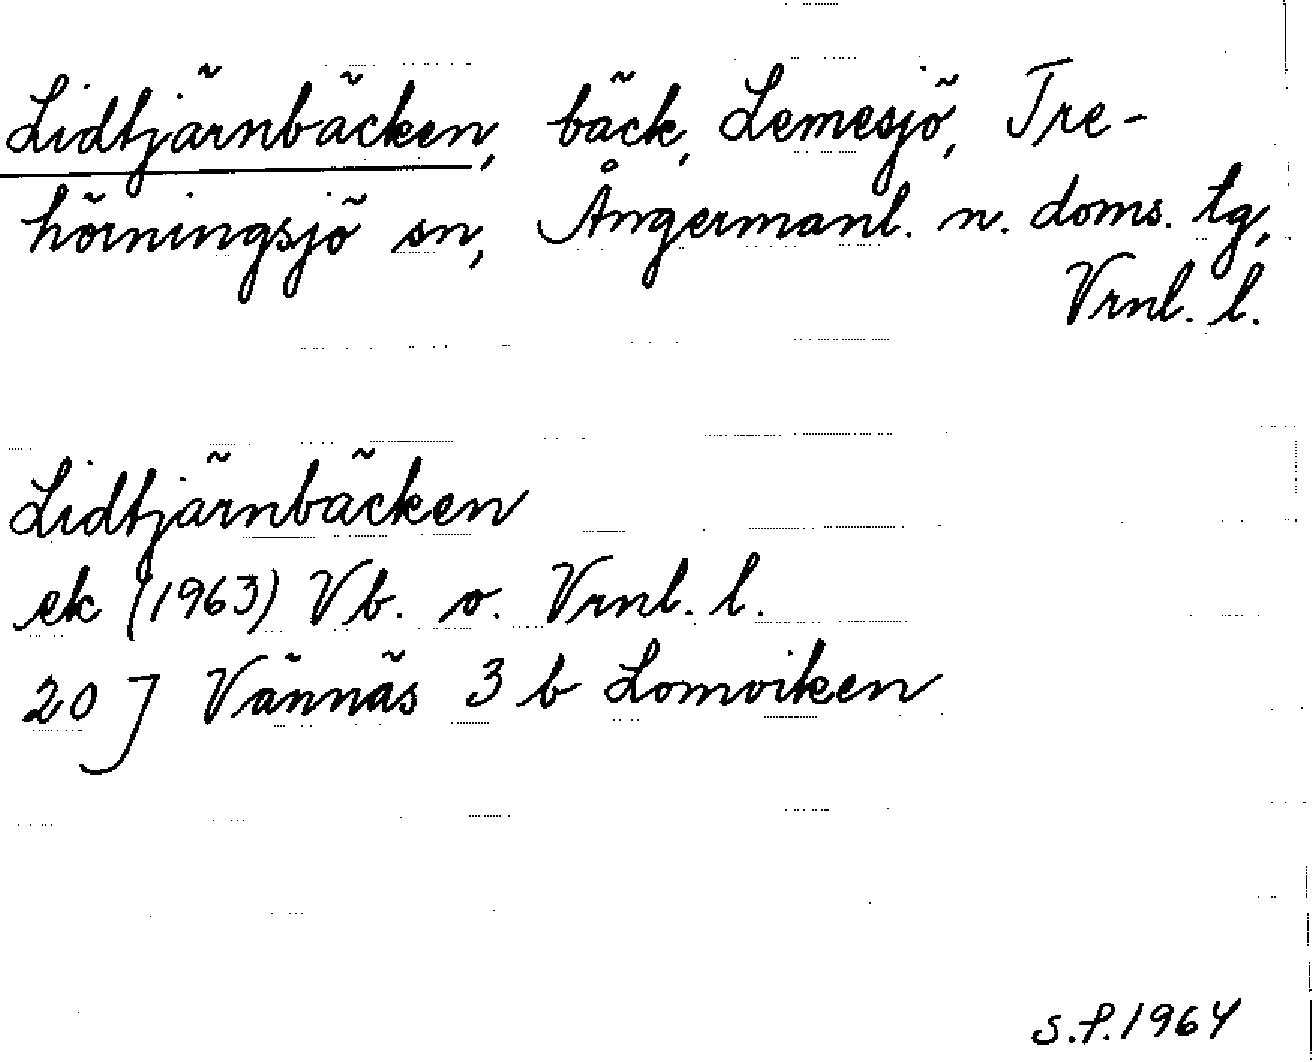 Lidtjärnbäcken, bäck, Lemesjö, Tre-
hörningsjö sn, Ångermanl. n. doms. tg,
Vrnl. l.
Lidtjärnbäcken
ek (1963) Vb. o. Vrnl. l.
20 J Vännäs 3 b Lomviken
S.P. 1964